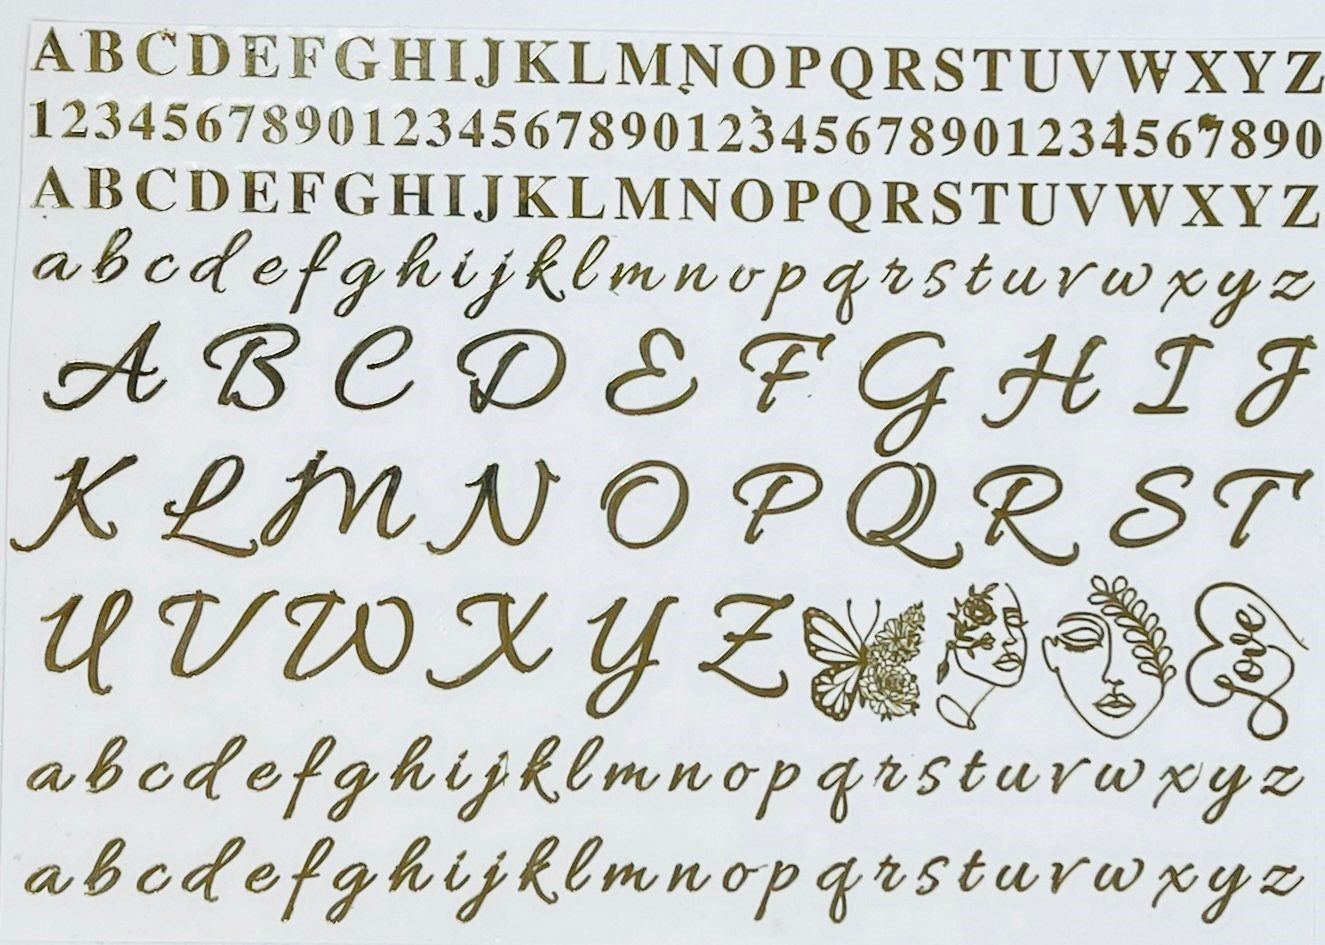 A B C D E F G H I J K L M N O P Q R S T U V W X Y Z
1 2 3 4 5 6 7 8 9 0 1 2 3 4 5 6 7 8 9 0 1 2 3 4 5 6 7 8 9 0 1 2 3 4 5 6 7 8 9 0
A B C D E F G H I J K L M N O P Q R S T U V W X Y Z
a b c d e f g h i j k l m n o p q r s t u v w x y z
A B C D E F G H I J
K L M N O P Q R S T
U V W X Y Z Love
a b c d e f g h i j k l m n o p q r s t u v w x y z
a b c d e f g h i j k l m n o p q r s t u v w x y z